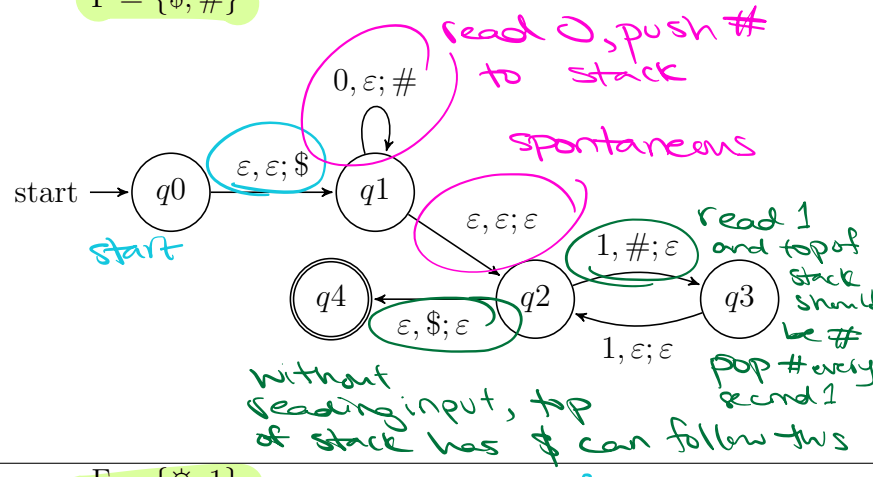 Γ = {$, #}
read 0, push #
to stack
0, ε; #
spontaneous
ε, ε; $
start
q0
q1
start
ε, ε; ε
read 1
and top of
stack
should
be #
pop # every
second 1
1, #; ε
q4
q2
q3
ε, $; ε
1, ε; ε
without
reading input, top
of stack has $ can follow this